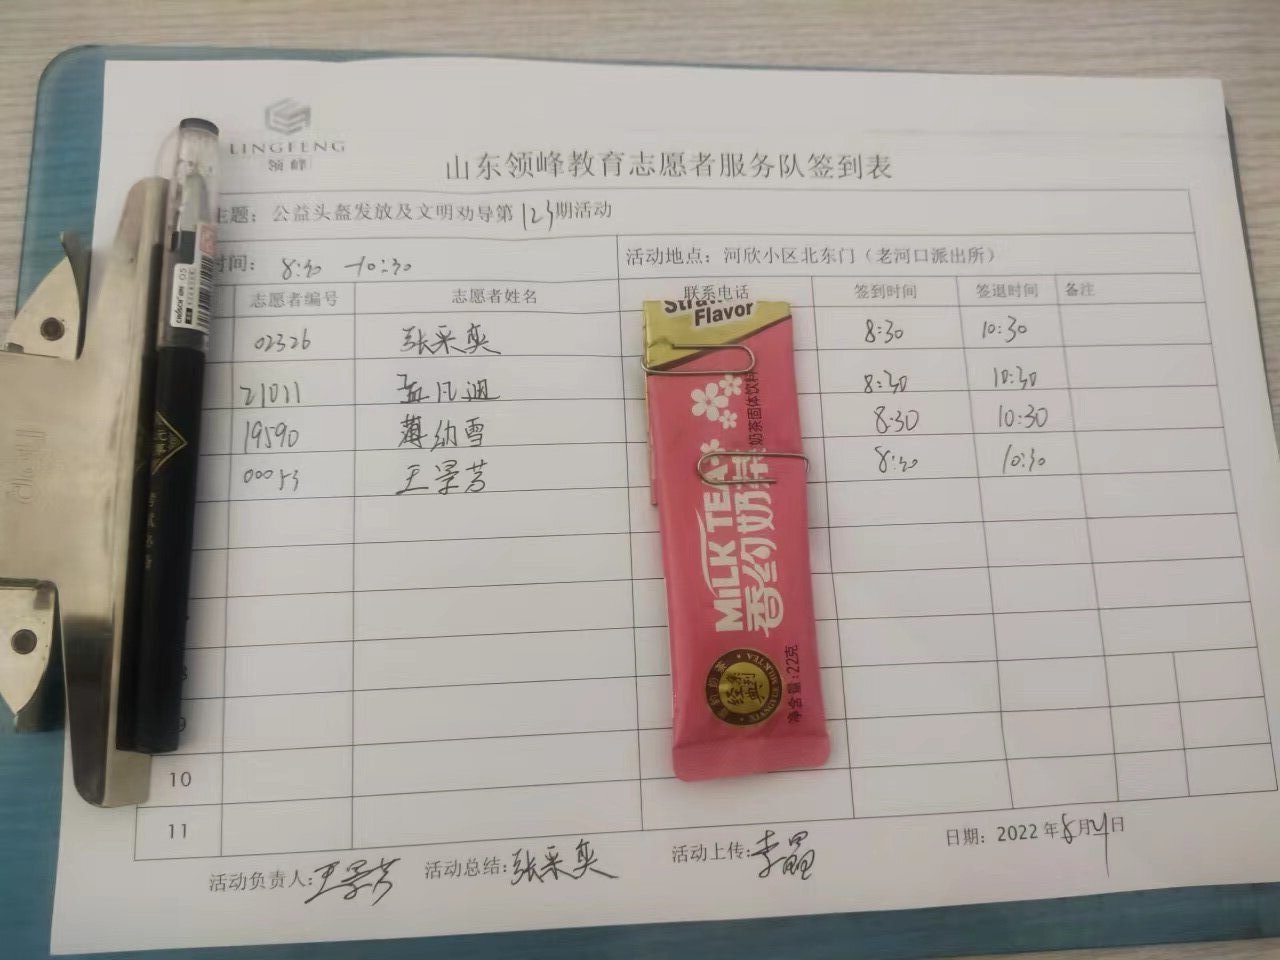 LINGFENG
领峰
山东领峰教育志愿者服务队签到表
主题：公益头盔发放及文明劝导第123期活动
时间：8:30-10:30 活动地点：河欣小区北东门（老河口派出所）
志愿者编号 志愿者姓名 联系电话 签到时间 签退时间 备注
02326 张采奕 8:30 10:30
21011 孟凡迥 8:30 10:30
19590 薄幼雪 8:30 10:30
00053 王景芳 8:30 10:30
9
10
11
活动负责人：王景芳 活动总结：张采奕 活动上传：李晶 日期：2022年8月21日
Flavor
MILK TEA
香约奶茶
奶茶固体饮料
经典系列
MILK TEA
净含量：22克
0.5